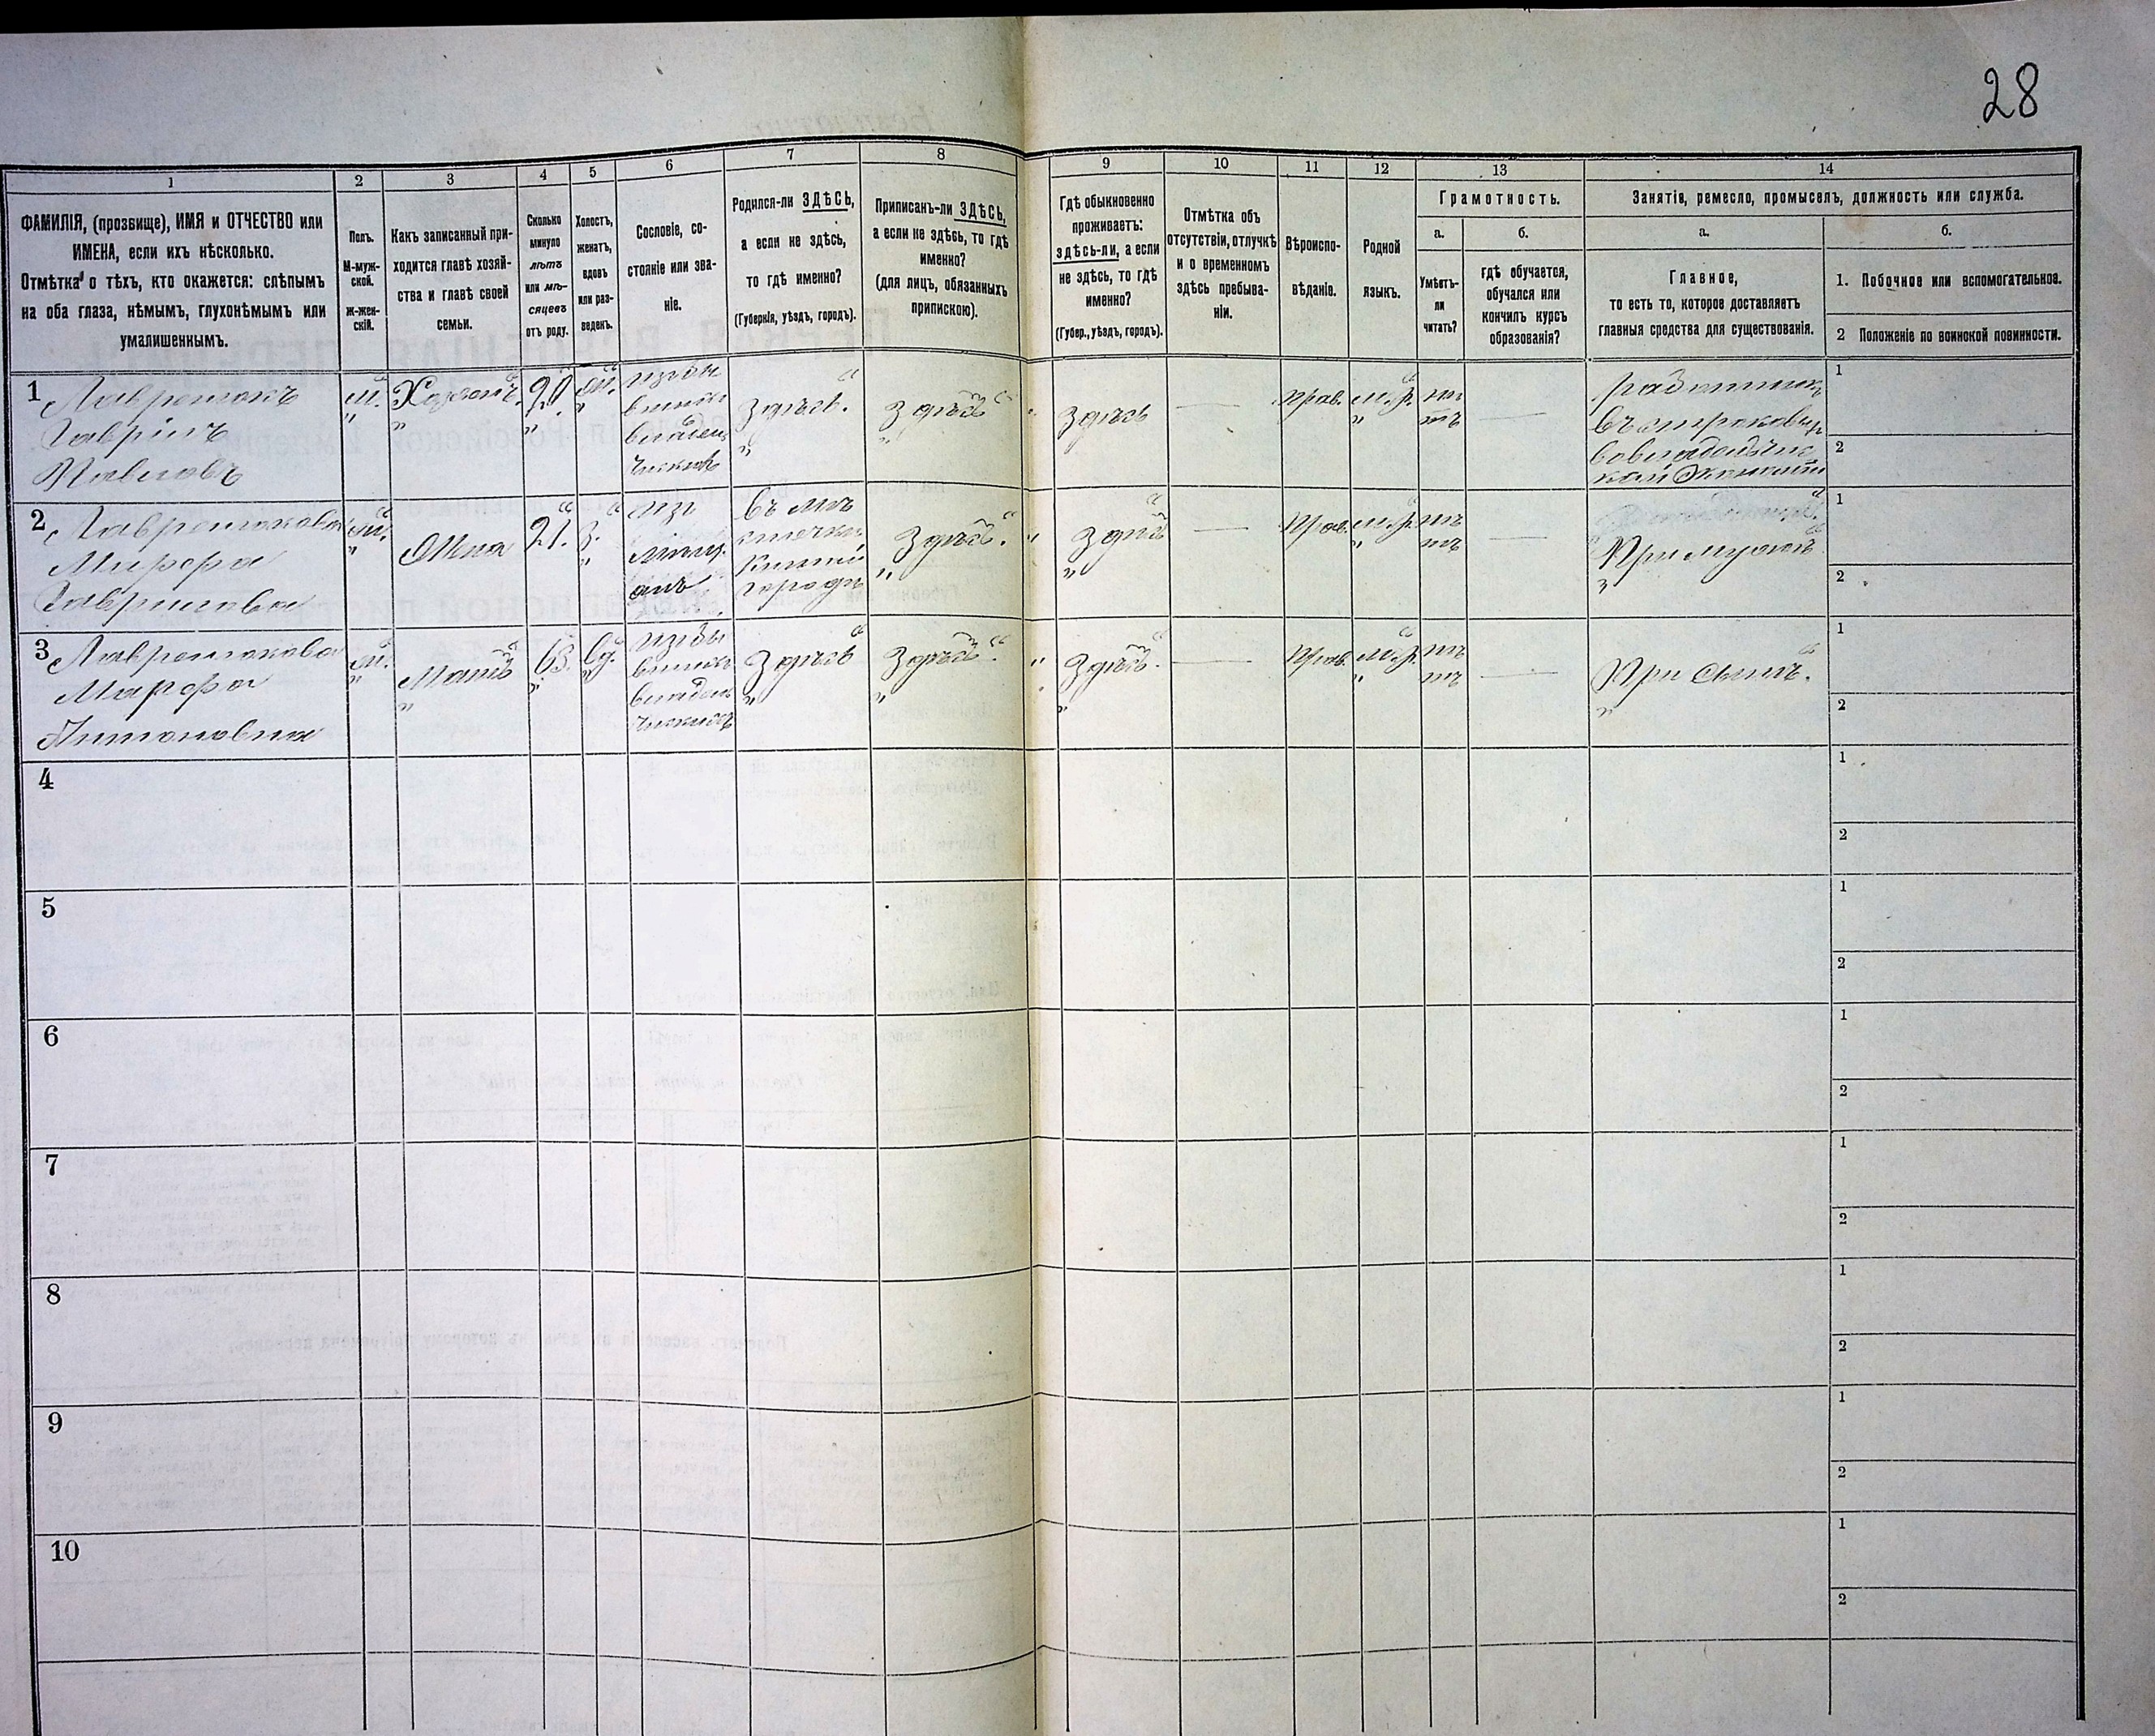 28
1
2
3
4
5
6
7
8
9
10
11
12
13
14
ФАМИЛІЯ, (прозвище), ИМЯ и ОТЧЕСТВО или
ИМЕНА, если ихъ нѣсколько.
Отмѣтка о тѣхъ, кто окажется: слѣпымъ
на оба глаза, нѣмымъ, глухонѣмымъ или
умалишеннымъ.
Полъ.
М-муж-
ской.
ж-жен-
скій.
Какъ записанный при-
ходится главѣ хозяй-
ства и главѣ своей
семьи.
Сколько
минуло
лѣтъ
или мѣ-
сяцевъ
отъ роду.
Холостъ,
женатъ,
вдовъ
или раз-
веденъ.
Сословіе, со-
стояніе или зва-
ніе.
Родился-ли ЗДѢСЬ,
а если не здѣсь,
то гдѣ именно?
(Губернія, уѣздъ, городъ).
Приписанъ-ли ЗДѢСЬ,
а если не здѣсь, то гдѣ
именно?
(для лицъ, обязанныхъ
припискою).
Гдѣ обыкновенно
проживаетъ:
здѣсь-ли, а если
не здѣсь, то гдѣ
именно?
(Губер., уѣздъ, городъ).
Отмѣтка объ
отсутствіи, отлучкѣ
и о временномъ
здѣсь пребыва-
ніи.
Вѣроиспо-
вѣданіе.
Родной
языкъ.
Грамотность.
а.
б.
Умѣетъ-
ли
читать?
гдѣ обучается,
обучался или
кончилъ курсъ
образованія?
Занятіе, ремесло, промыселъ, должность или служба.
а.
б.
Главное,
то есть то, которое доставляетъ
главныя средства для существованія.
1. Побочное или вспомогательное.
2 Положеніе по воинской повинности.
1 Лавренюкъ
Гаврилъ
Павловъ
м.
Хозяинъ
здѣсь.
здѣсь
здѣсь
прав.
м.р.
нѣ
тъ
1
2
2
Марфа
Гаврилова
Жена
21.
изъ
въ мѣ
стечкѣ
здѣсь.
здѣсь
прав.
м.р.
нѣ
тъ
При мужѣ
1
2
3
Марфа
Антоновна
Мать
63.
вд.
здѣсь
здѣсь.
здѣсь.
прав.
м.р.
нѣ
тъ
При сынѣ.
1
2
4
1
2
5
1
2
6
1
2
7
1
2
8
1
2
9
1
2
10
1
2